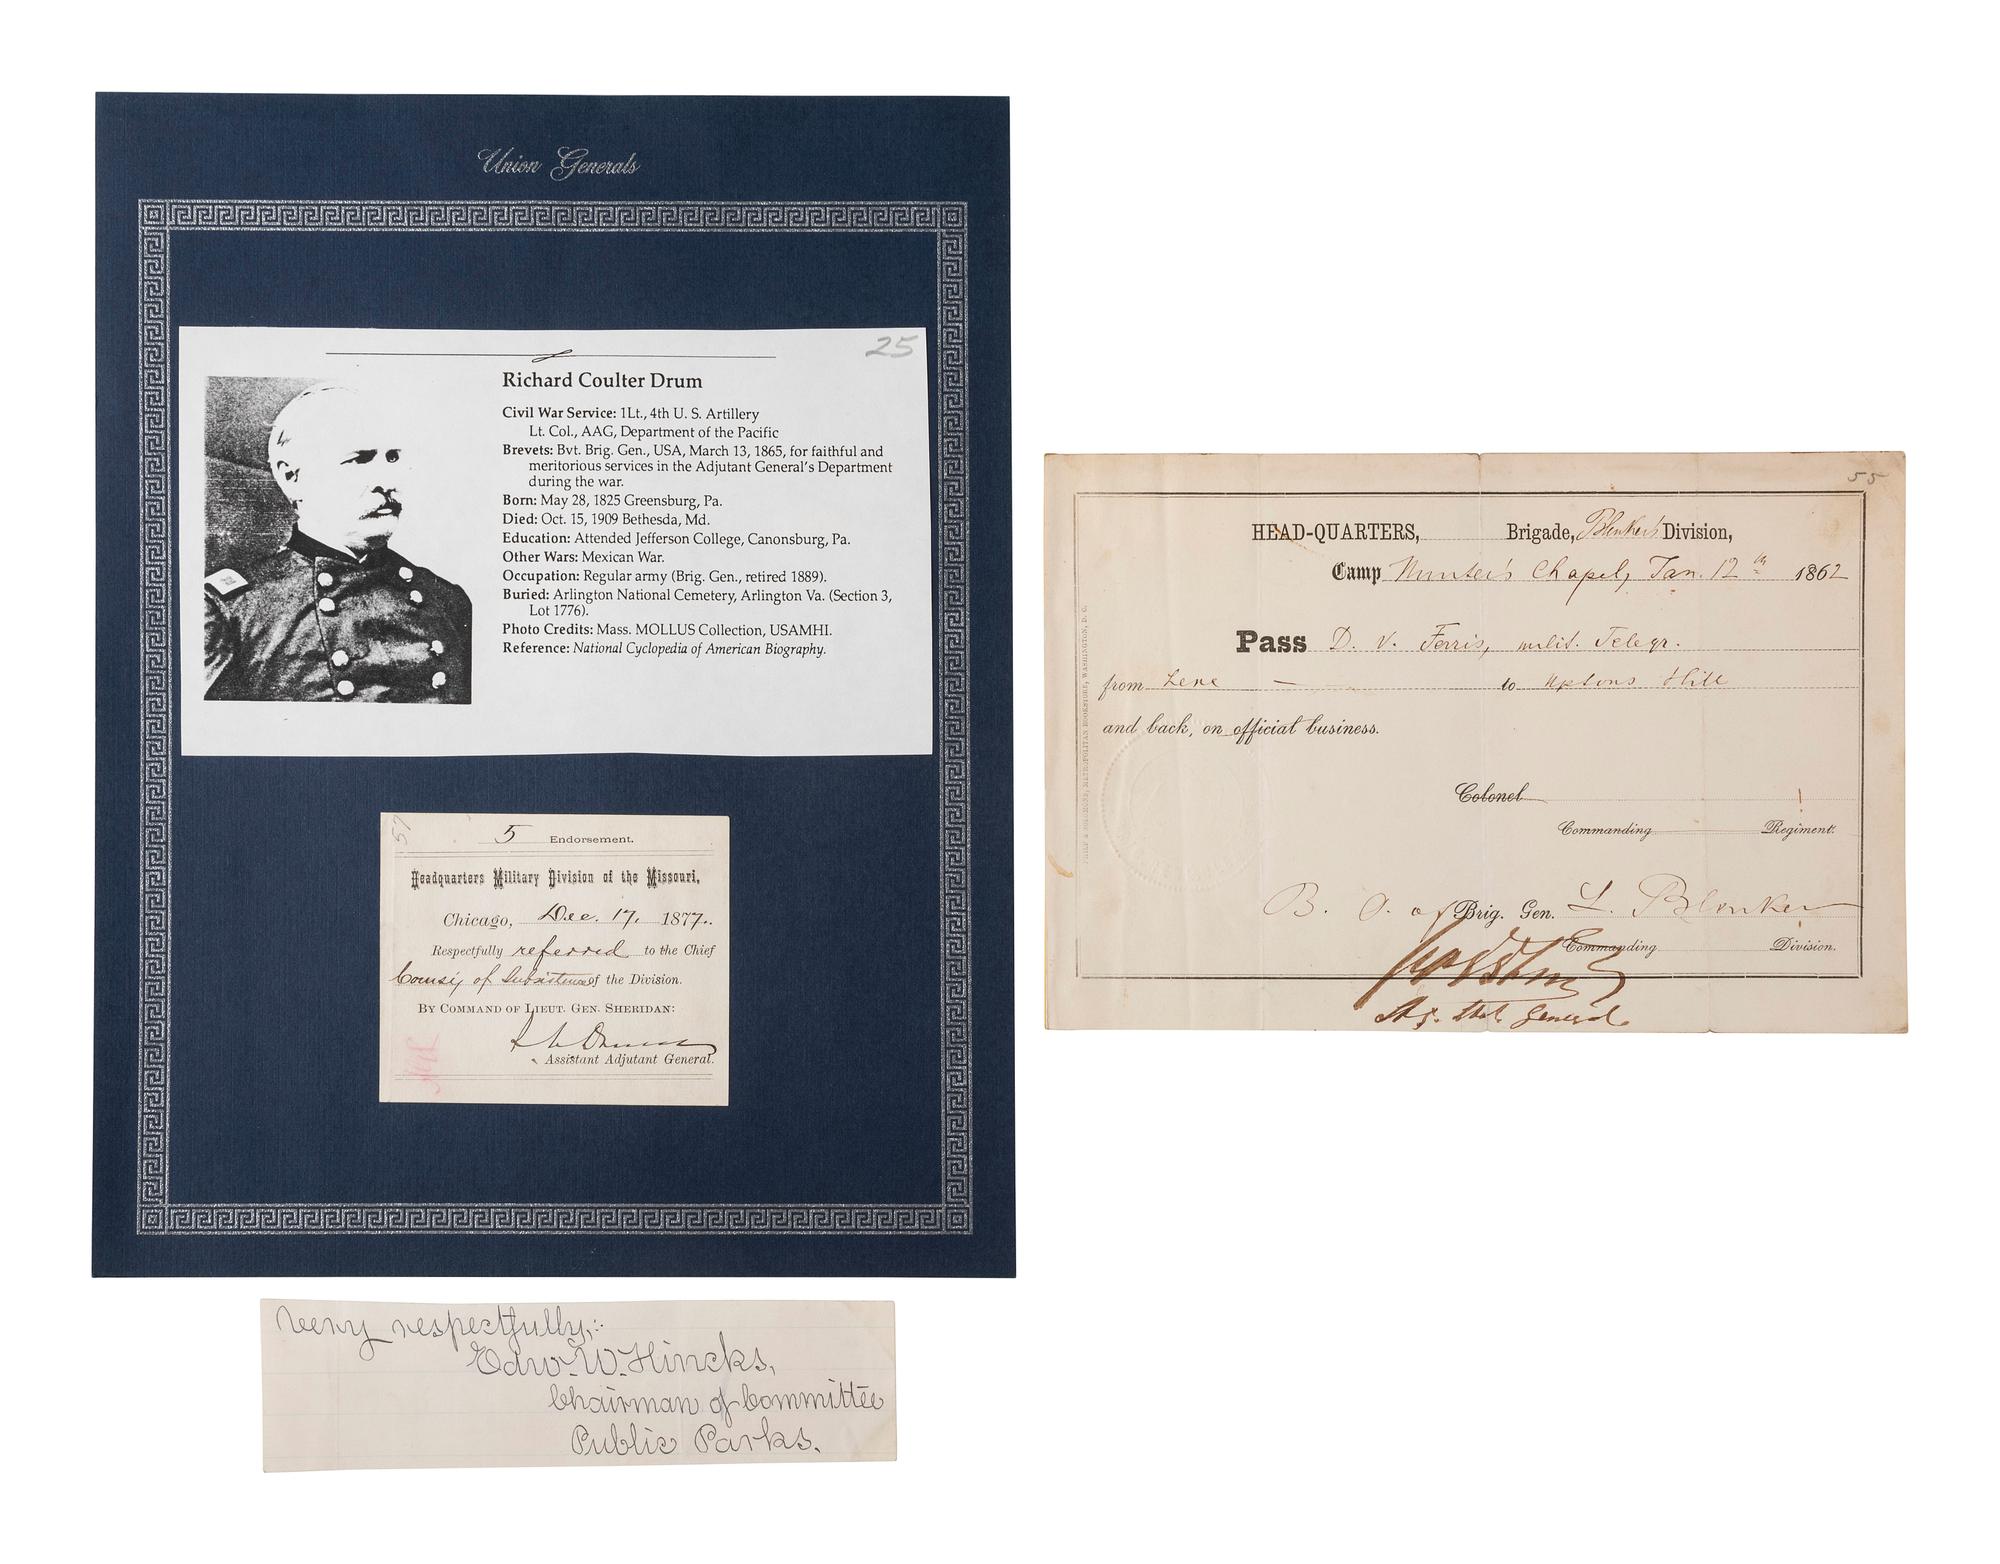 Union Generals
25
Richard Coulter Drum
Civil War Service: 1Lt., 4th U. S. Artillery
Lt. Col., AAG, Department of the Pacific
Brevets: Bvt. Brig. Gen., USA, March 13, 1865, for faithful and
meritorious services in the Adjutant General's Department
during the war.
Born: May 28, 1825 Greensburg, Pa.
Died: Oct. 15, 1909 Bethesda, Md.
Education: Attended Jefferson College, Canonsburg, Pa.
Other Wars: Mexican War.
Occupation: Regular army (Brig. Gen., retired 1889).
Buried: Arlington National Cemetery, Arlington Va. (Section 3,
Lot 1776).
Photo Credits: Mass. MOLLUS Collection, USAMHI.
Reference: National Cyclopedia of American Biography.
5 Endorsement.
Headquarters Military Division of the Missouri,
Chicago, Dec. 17, 1877.
Respectfully referred to the Chief
Comsy of Subsistence of the Division.
BY COMMAND OF LIEUT. GEN. SHERIDAN:
R C Drum
Assistant Adjutant General.
Very respectfully,
Edw. W. Hincks,
Chairman of Committee
Public Parks.
55
HEAD-QUARTERS, Brigade, Blenker's Division,
Camp Hunter's Chapel, Jan. 12th 1862
Pass D. V. Ferris, milit. Telegr.
from here to Uptons Hill
and back, on official business.
PHILP & SOLOMONS, METROPOLITAN BOOKSTORE, WASHINGTON, D. C.
Colonel
Commanding Regiment.
B. O. of Brig. Gen. L. Blenker
Commanding Division.
General